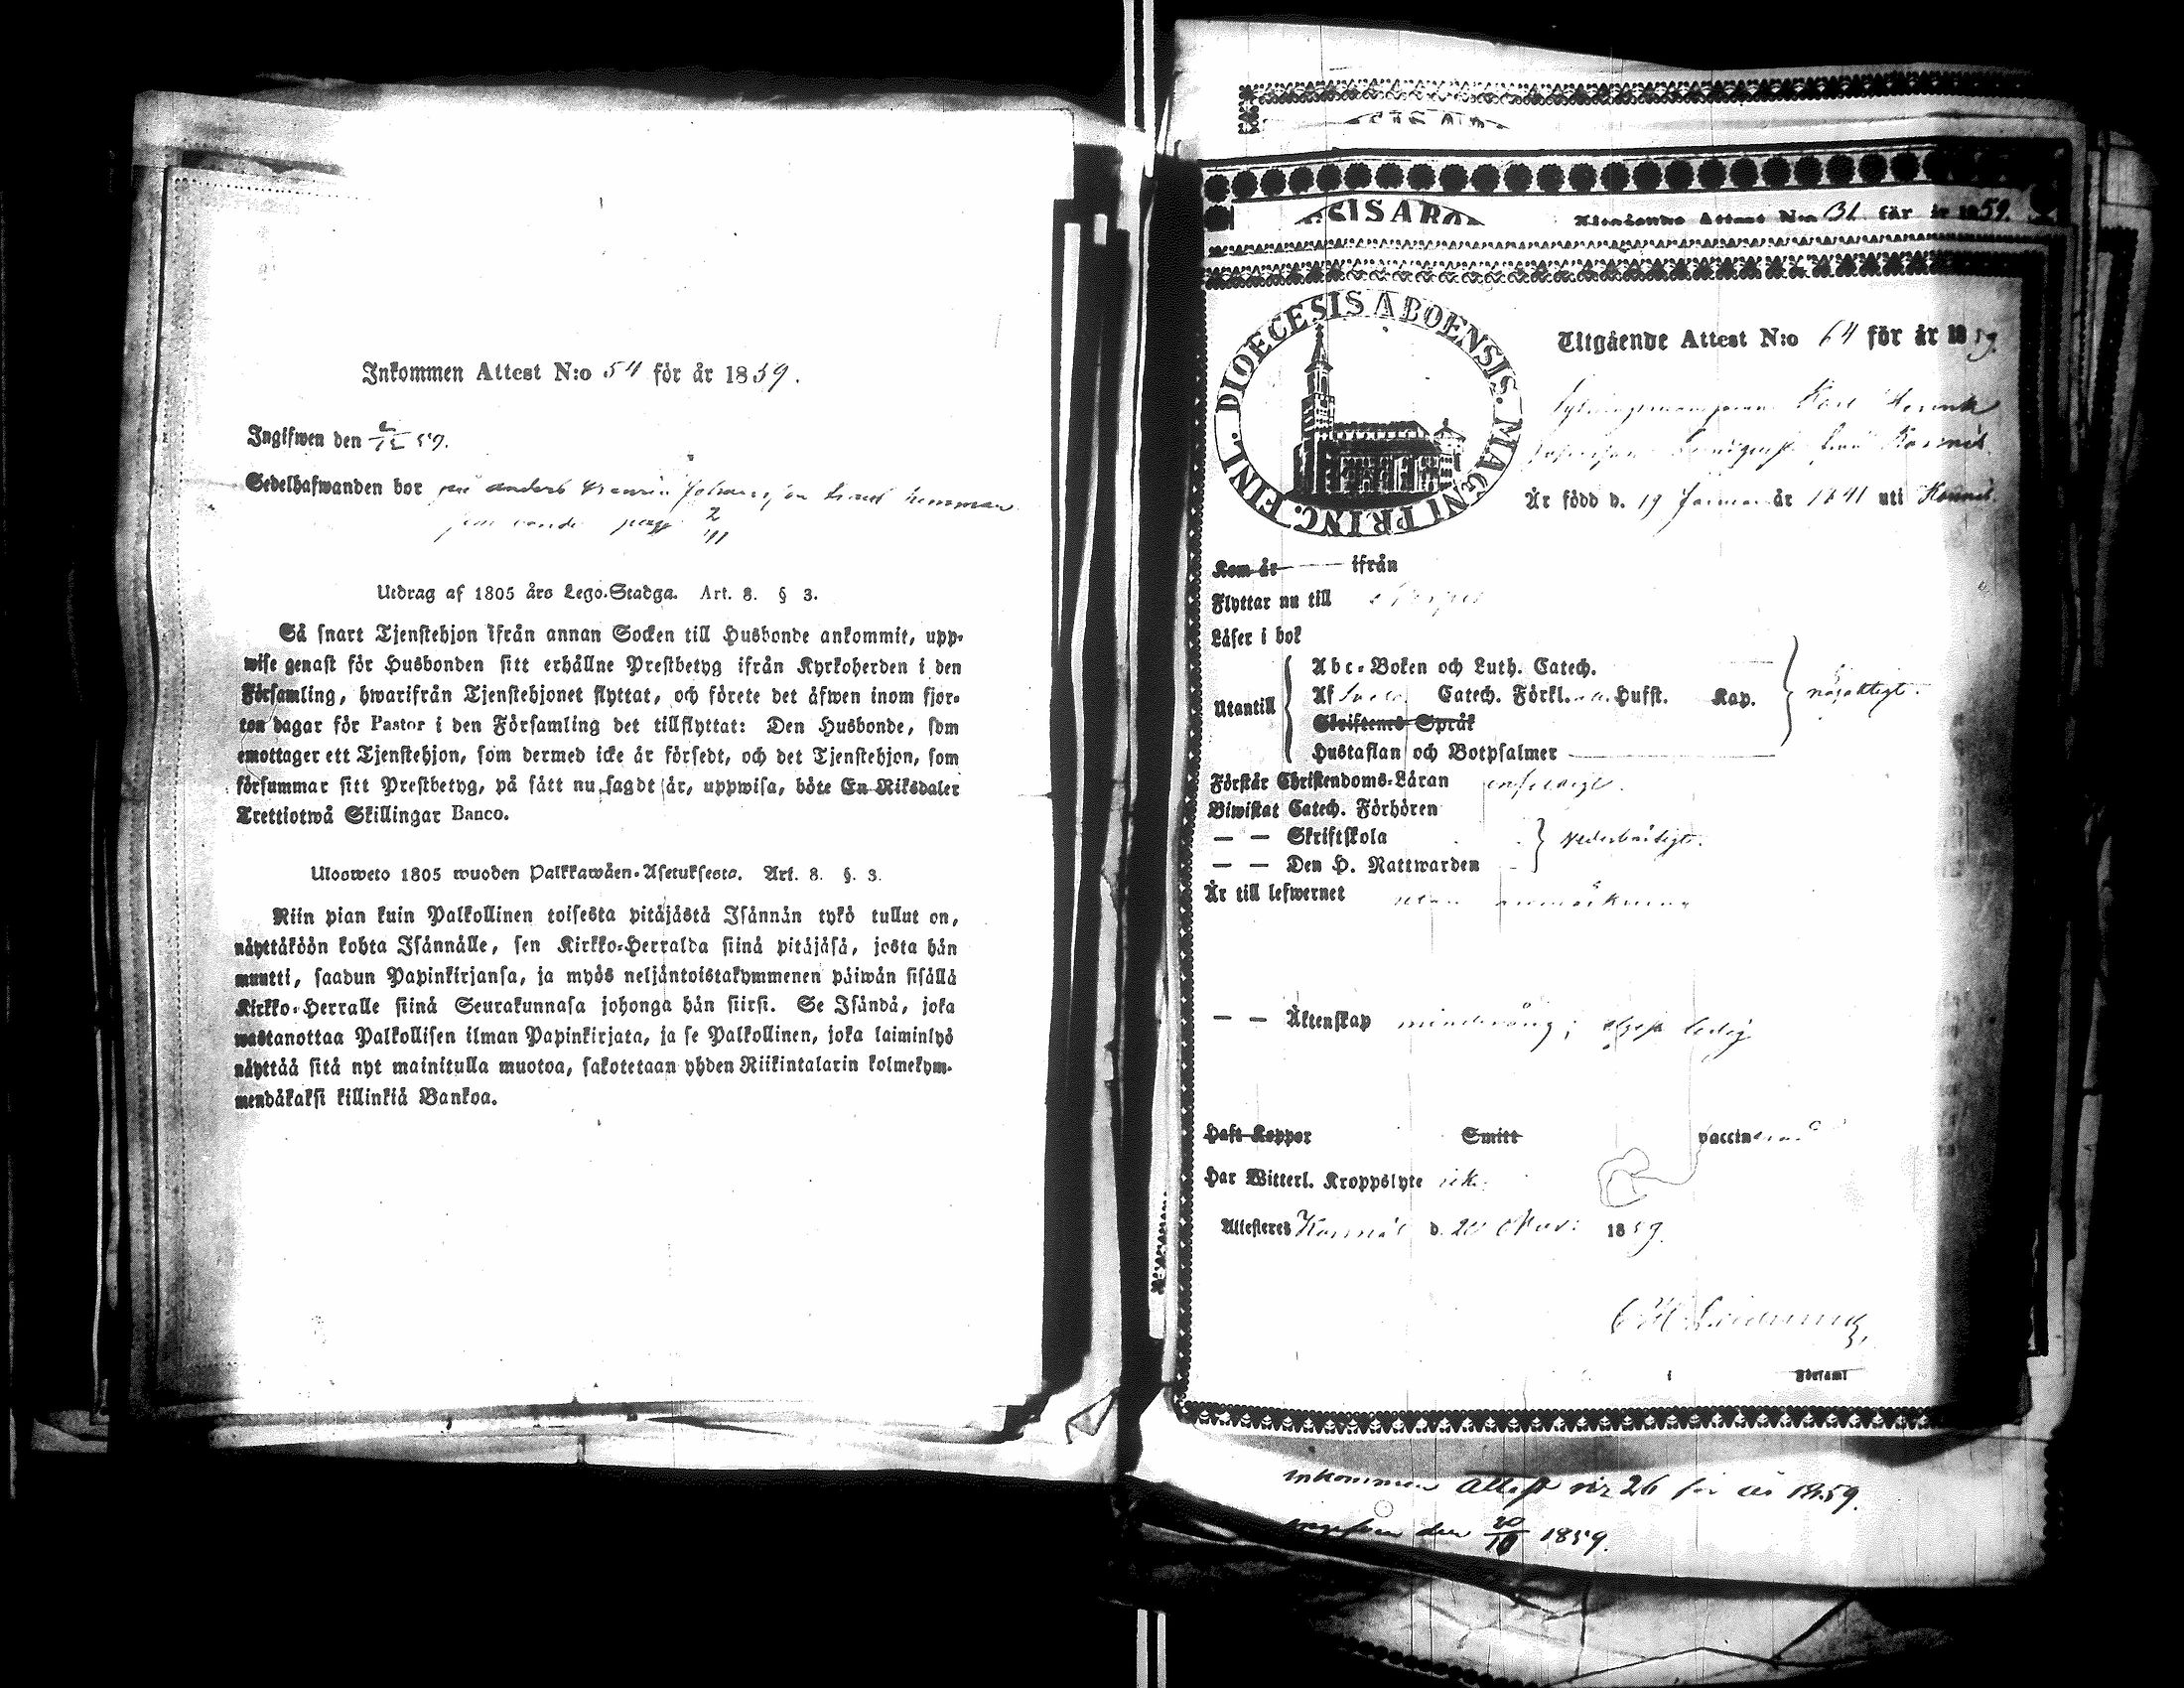 Inkommen Attest N:o 54 för år 1859.
Ingifwen den 2/12 59.
Sedelhafwanden bor på Anders Henrik Johansson hemman
pag 2
Utdrag af 1805 års Lego-Stadga. Art. 8. § 3.
Så snart Tjenstehjon ifrån annan Socken till Husbonde ankommit, upp-
wise genast för Husbonden sitt erhållne Prestbetyg ifrån Kyrkoherden i den
Församling, hwarifrån Tjenstehjonet flyttat, och förete det äfwen inom fjor-
ton dagar för Pastor i den Församling det tillflyttat: Den Husbonde, som
emottager ett Tjenstehjon, som dermed icke är försedt, och det Tjenstehjon, som
försummar sitt Prestbetyg, på sätt nu sagdt är, uppwisa, böte En Riksdaler
Trettiotwå Skillingar Banco.
Ulosweto 1805 wuoden Palkkawäen-Asetuksesta. Art. 8. §. 3.
Niin pian kuin Palkollinen toisesta pitäjästä Isännän tykö tullut on,
näyttäköön kohta Isännälle, sen Kirkko-Herralda siinä pitäjäsä, josta hän
muutti, saadun Papinkirjansa, ja myös neljäntoistakymmenen päiwän sisällä
Kirkko-Herralle siinä Seurakunnasa johonga hän siirsi. Se Isändä, joka
wastanottaa Palkollisen ilman Papinkirjata, ja se Palkollinen, joka laiminlyö
näyttää sitä nyt mainitulla muotoa, sakotetaan yhden Riikintalarin kolmekym-
mendäkaksi killinkiä Bankoa.
Utgående Attest N:o 31 för år 1859.
DIOECESIS ABOENSIS. MAGNI PRINC. FINL.
Utgående Attest N:o 64 för år 1859
Karl Henrik
från Korsnäs
Är född d. 19 Januari år 1841 uti Korsnäs
Kom år ifrån
Flyttar nu till
Läser i bok
Utantill
Abc-Boken och Luth. Catech.
Af Catech. Förkl. Hufst. Kap. nöjaktigt.
Skriftenes Språk
Hustaflan och Botpsalmer
Förstår Christendoms-Läran enfaldigt.
Biwistat Catech. Förhören
— — Skriftskola vederbörligt.
— — Den H. Nattwarden
Är till lefwernet utan anmärkning
— — Äktenskap minderårig; altså ledig
Haft Koppor Smitt vaccinerad
Har Witterl. Kroppslyte icke
Attesteres Korsnäs d. 20 Nov: 1859.
i Församl
Inkommen Attest nr 26 för år 1859.
Ingifven den 20/10 1859.